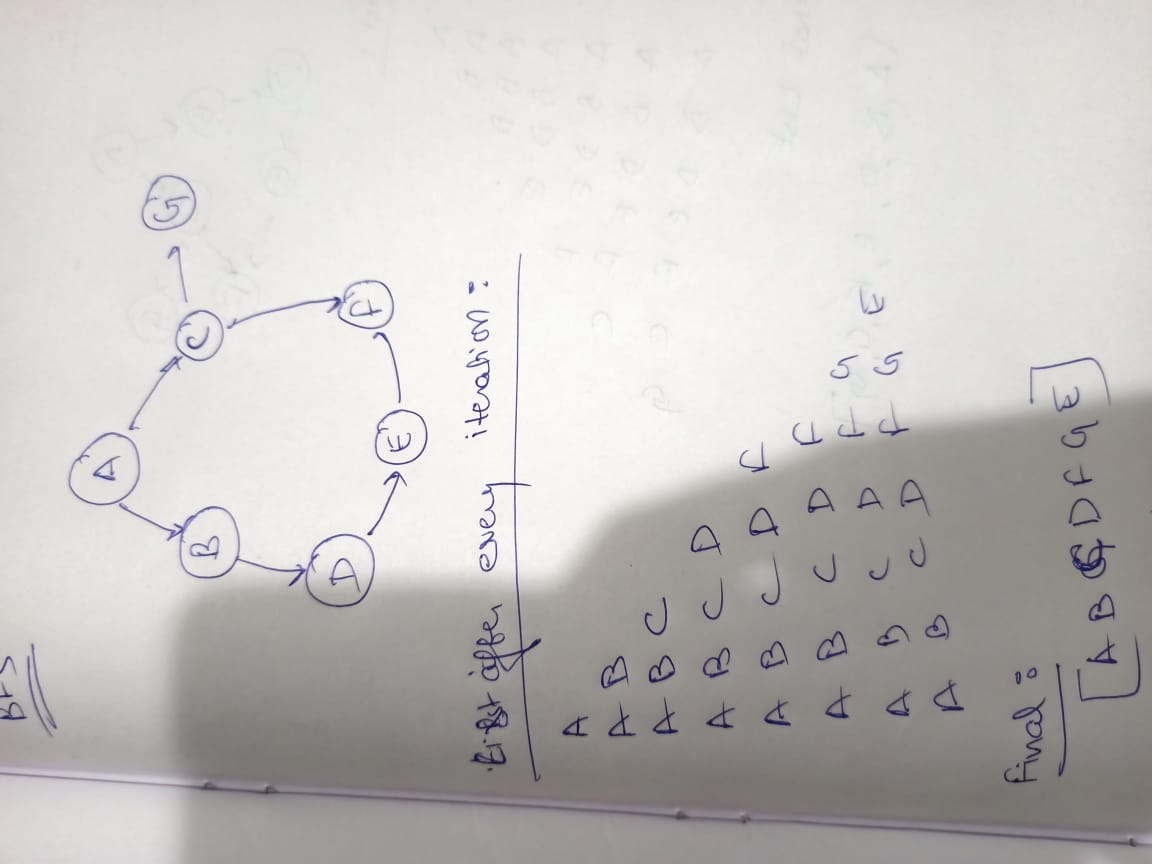 BFS
A
G
B C
D F
E
List after every iteration :
A
A B
A B C
A B C D
A B C D F
A B C D F
A B C D F G
A B C D F G E
Final :
[A B C D F G E]